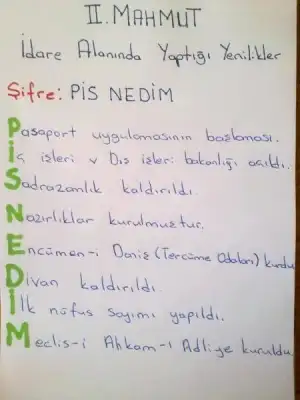 II. MAHMUT
İdare Alanında Yaptığı Yenilikler
Şifre: PİS NEDİM
Pasaport uygulamasının başlaması.
İç işleri v Dış işleri bakanlığı açıldı.
Sadrazamlık kaldırıldı.
Nazırlıklar kurulmuştur.
Encümen-i Daniş (Tercüme Odaları) kurdu
Divan kaldırıldı.
İlk nüfus sayımı yapıldı.
Meclis-i Ahkam-ı Adliye kuruldu